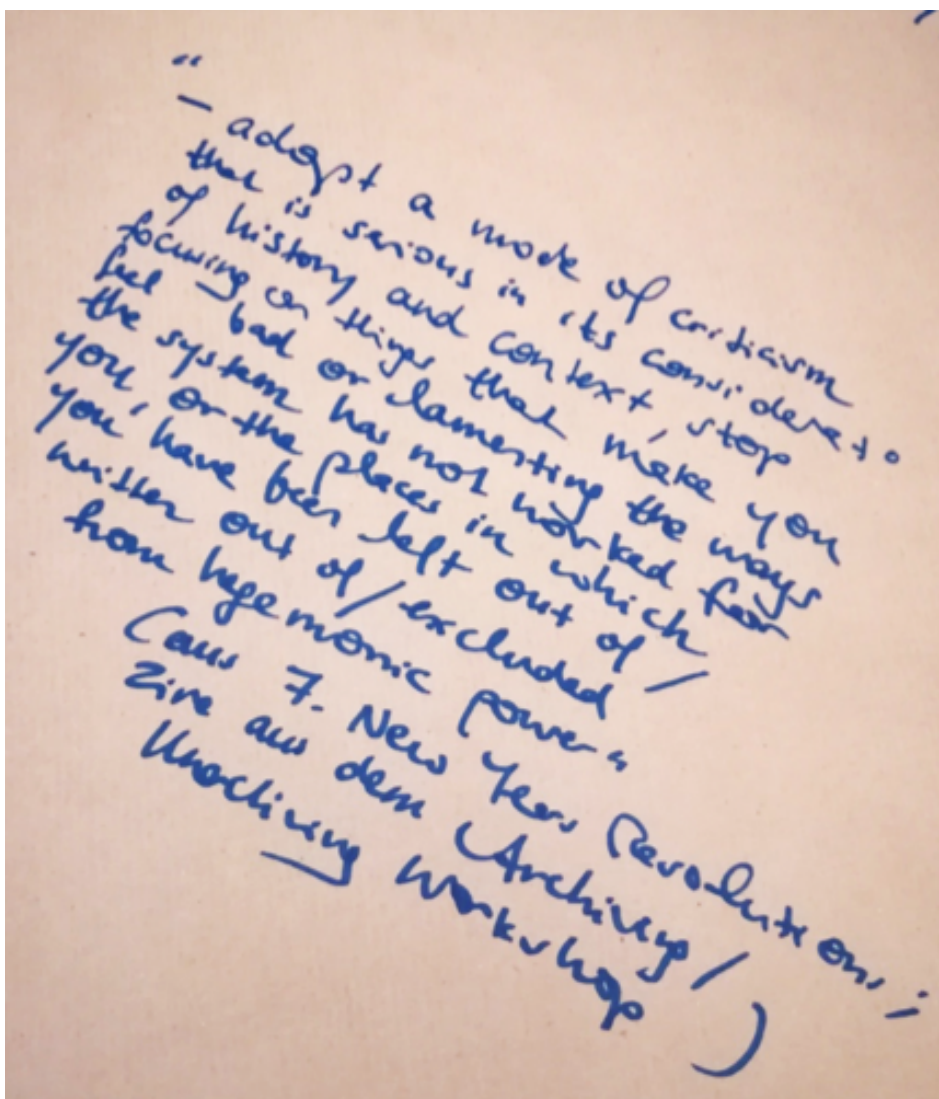 "
– adopt a mode of criticism
that is serious in its considerat°
of history and context, stop
focusing on things that make you
feel bad or lamenting the ways
the system has not worked for
you, or the places in which
you have been left out of /
written out of / excluded
from hegemonic power"
(aus 7. New Years Revolutions;
Zine aus dem (Archiving /
Unarchiving Workshop
)